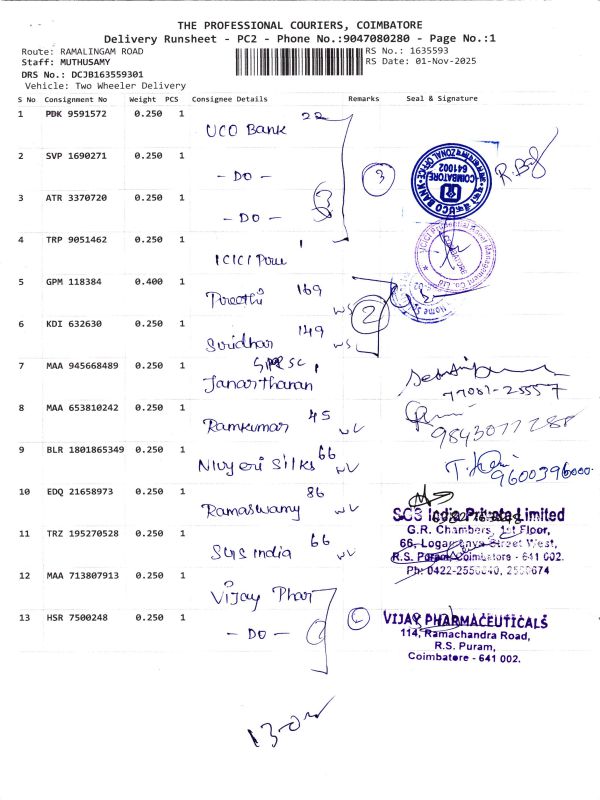 THE PROFESSIONAL COURIERS, COIMBATORE
Delivery Runsheet - PC2 - Phone No.:9047080280 - Page No.:1
Route: RAMALINGAM ROAD
RS No.: 1635593
Staff: MUTHUSAMY
RS Date: 01-Nov-2025
DRS No.: DCJB163559301
Vehicle: Two Wheeler Delivery
S No Consignment No Weight PCS Consignee Details Remarks Seal & Signature
1 PDK 9591572 0.250 1 UCO Bank 22
2 SVP 1690271 0.250 1 - DO -
3 ATR 3370720 0.250 1 - DO -
3
3
COIMBATORE
641002
UCO BANK
4 TRP 9051462 0.250 1 ICICI
5 GPM 118384 0.400 1 Preethi 169
2
6 KDI 632630 0.250 1 Sridhar 149
7 MAA 945668489 0.250 1 Janarthanan
77081-25557
8 MAA 653810242 0.250 1 Ramkumar 45
9843077288
9 BLR 1801865349 0.250 1 Silks 66
9600396000
10 EDQ 21658973 0.250 1 Ramaswamy 86
11 TRZ 195270528 0.250 1 SGS India 66
SGS India Private Limited
G.R. Chambers, 1st Floor,
66, Logamanya Street West,
R.S. Puram, Coimbatore - 641 002.
12 MAA 713807913 0.250 1 Vijay Phar
13 HSR 7500248 0.250 1 - DO -
VIJAY PHARMACEUTICALS
114, Ramachandra Road,
R.S. Puram,
Coimbatore - 641 002.